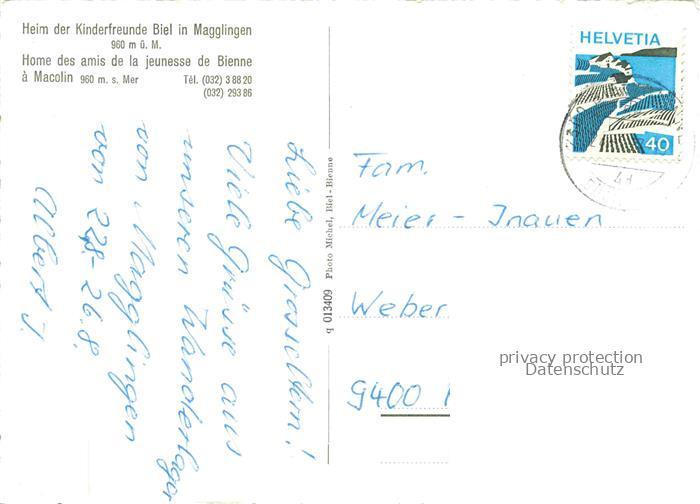 Heim der Kinderfreunde Biel in Magglingen
960 m ü. M.
Home des amis de la jeunesse de Bienne
à Macolin 960 m. s. Mer Tél. (032) 3 88 20
(032) 2 93 86
Liebe Grosseltern!
Viele Grüsse aus
unseren Wanderlager
von Magglingen
von 22.8.-26.8.
Albert J.
q 013409 Photo Michel, Biel-Bienne
HELVETIA
40
Fam.
Meier - Inauen
Weber
9400
privacy protection
Datenschutz